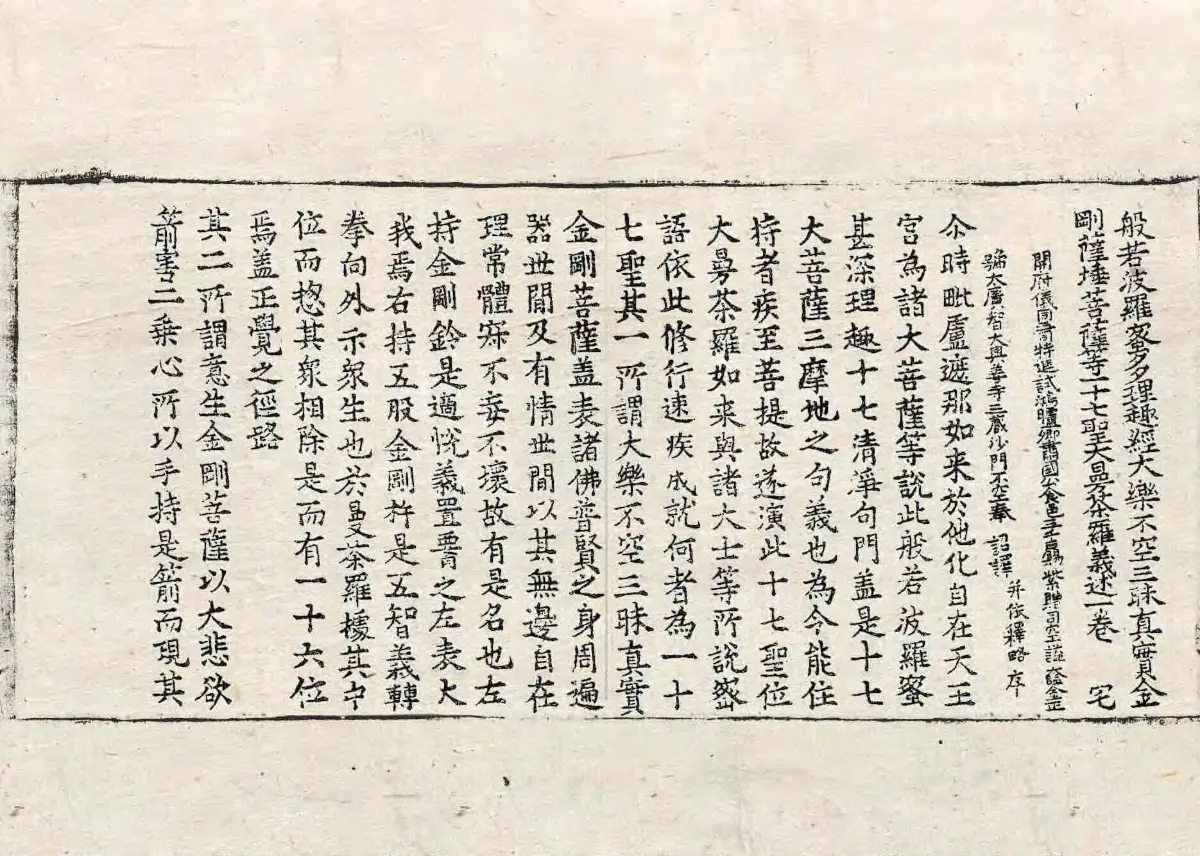 般若波羅蜜多理趣經大樂不空三昧真實金
剛薩埵菩薩等一十七聖大曼荼羅義述一卷 宅
開府儀同三司特進試鴻臚卿肅國公食邑三千戶賜紫贈司空謚大鑒正
號大廣智大興善寺三藏沙門不空奉 詔譯 并依釋略序
尒時毗盧遮那如来於他化自在天王
宮為諸大菩薩等說此般若波羅蜜
甚深理趣十七清淨句門盖是十七
大菩薩三摩地之句義也為令能住
持者疾至菩提故遂演此十七聖位
大曼荼羅如来與諸大士等所說密
語依此修行速疾成就何者為一十
七聖其一所謂大樂不空三昧真實
金剛菩薩盖表諸佛普賢之身周遍
器世間及有情世間以其無邊自在
理常體寂不妄不壞故有是名也左
持金剛鈴是適悅義置䏶之左表大
我焉右持五股金剛杵是五智義轉
拳向外示衆生也於曼荼羅據其中
位而揔其衆相除是而有一十六位
焉盖正覺之徑路
其二所謂意生金剛菩薩以大悲欲
箭害二乗心所以手持是箭而現其